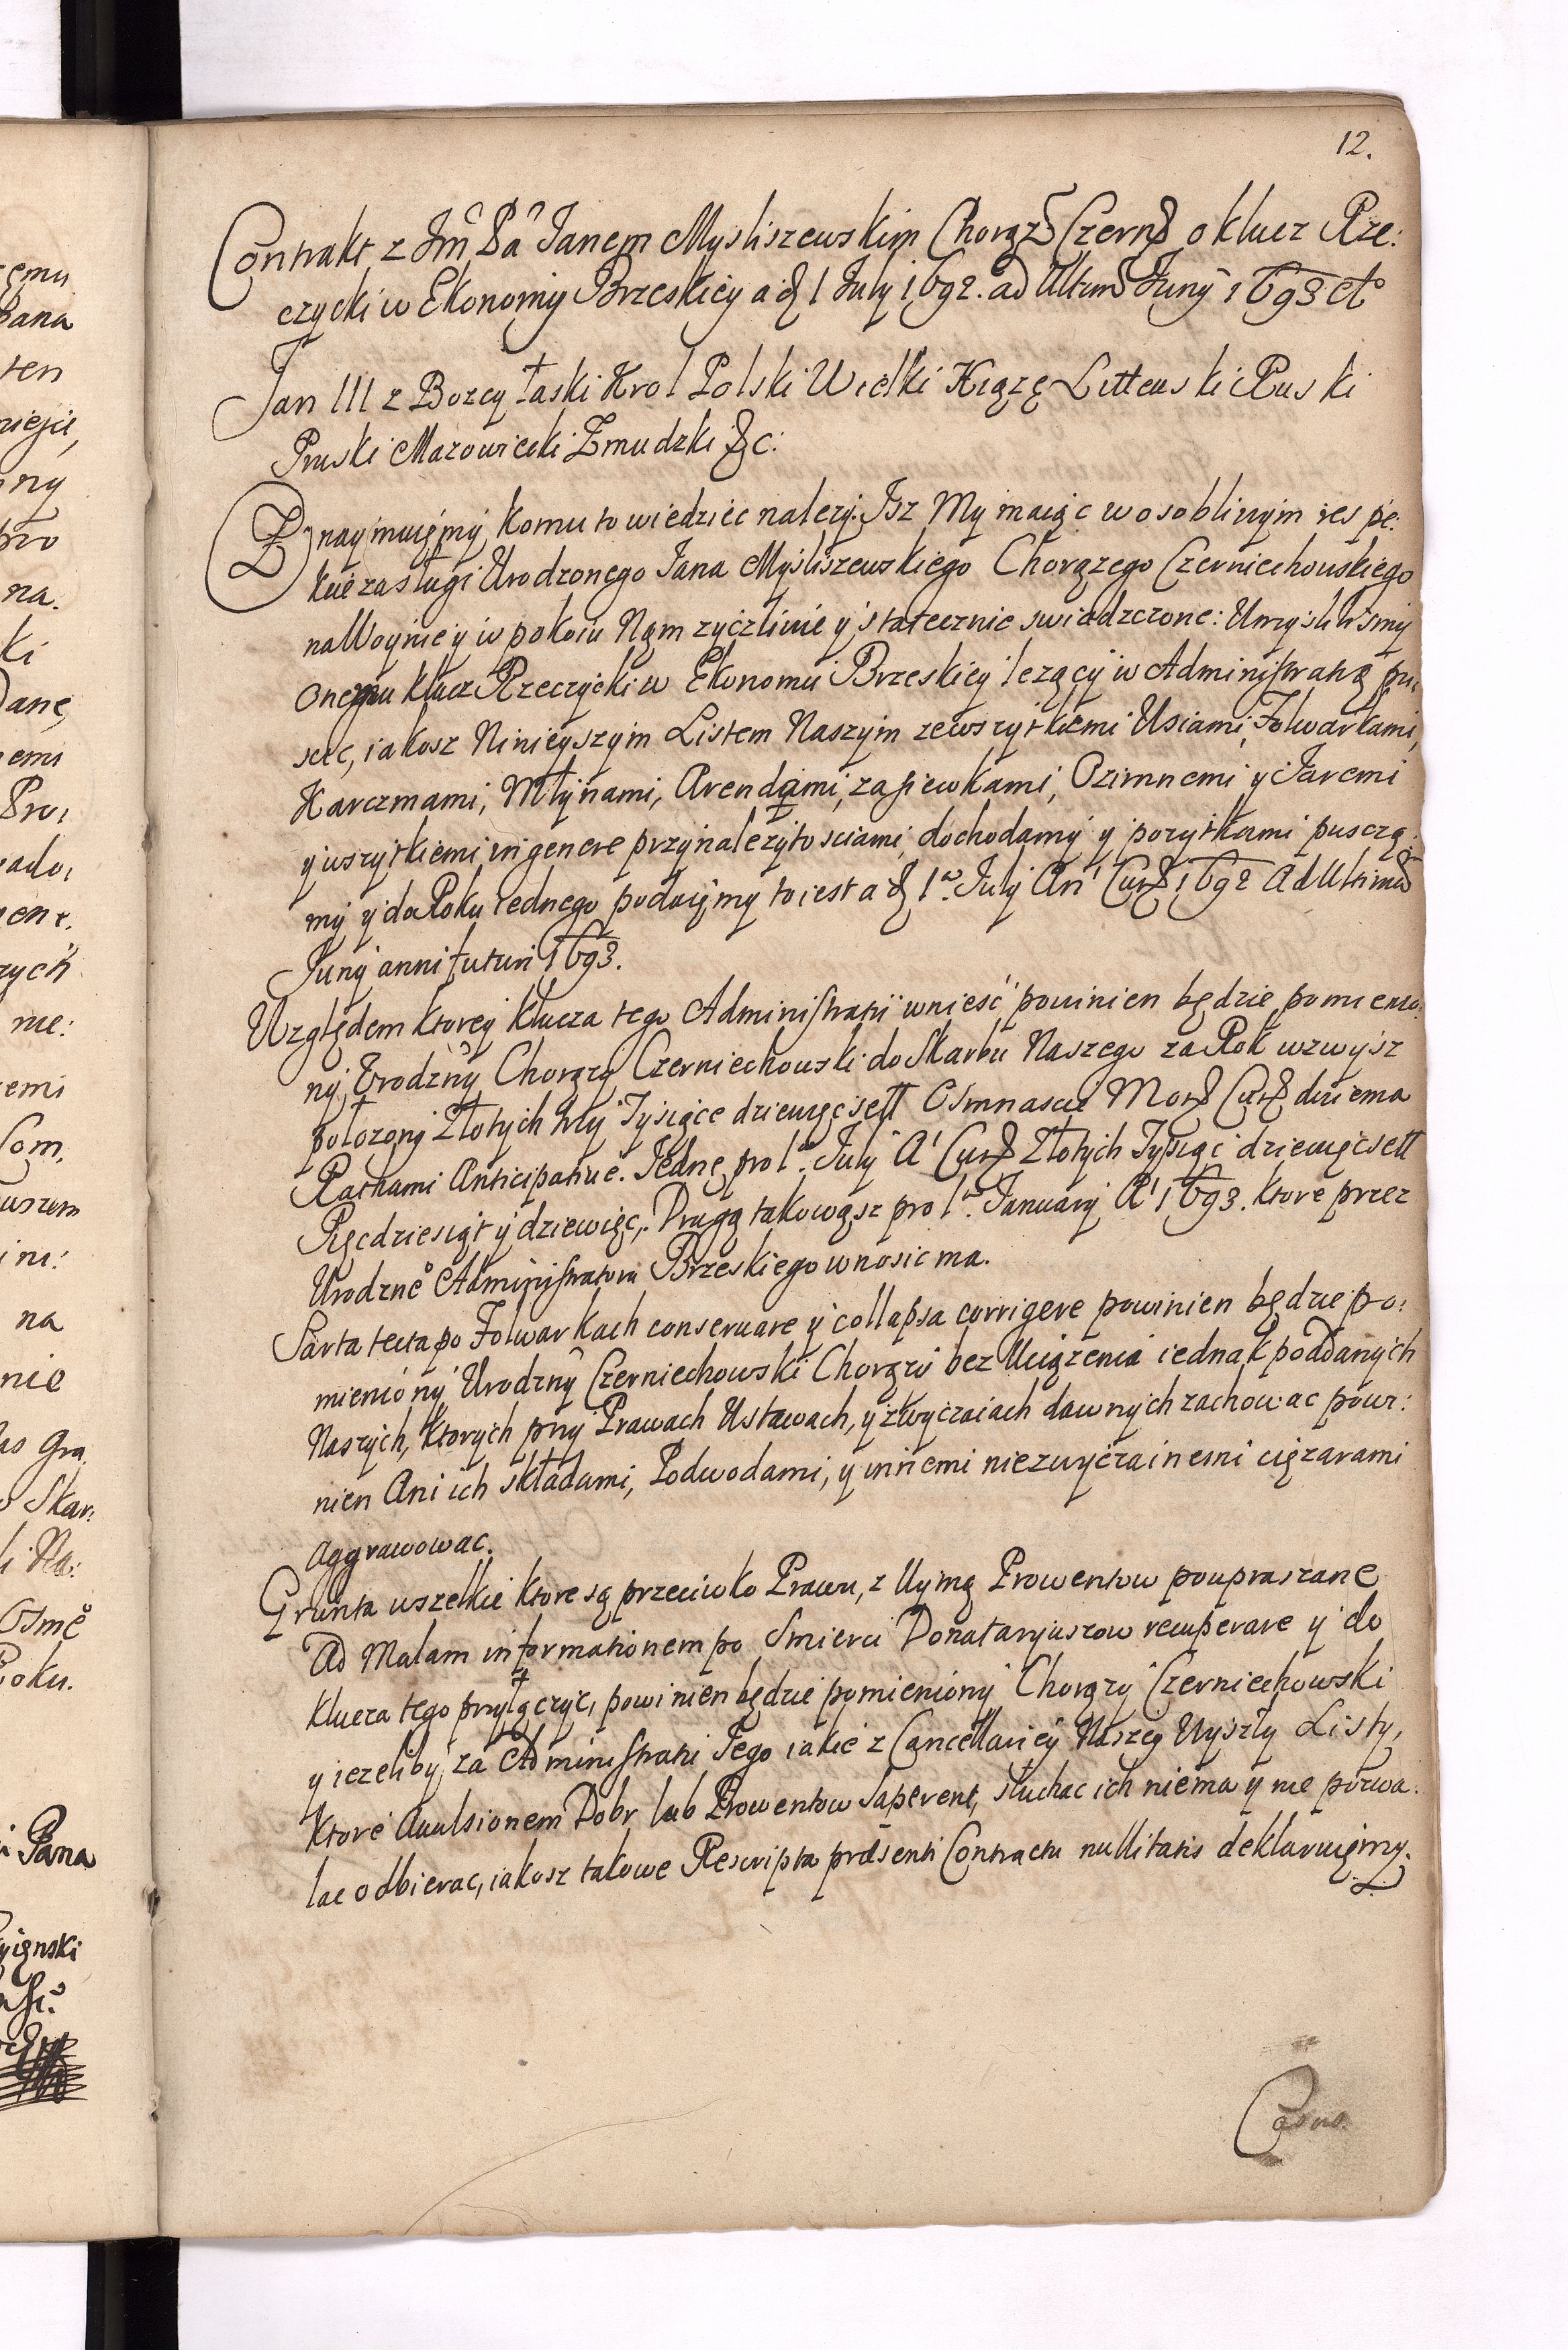 12.
Contrakt z Jm̃ Pã Janem Mysliszewskim Chorąz Czern o klucz Rze:
czycki w Ekonomiy Brzeskiey a d 1 July 1692. ad Ultim Juny 1693 Ao
Jan III z Bozey łaski Krol Polski Wielki Xiązę Littewski Ruski
Pruski Mazowiecki Zmudzki &c:
Znaymuięmy komu to wiedziec nalezy. Isz My maiąc w osobliwym respe:
kcie zasługi Urodzonego Jana Mysliszewskiego Chorązego Czerniechowskiego
na Woynie y w pokoiu Nąm zyczliwie y statecznie swiadzczone: Umyslilismy
onemu klucz Rzeczycki w Ekonomii Brzeskiey lezący w Administratią pu,
scic, iakosz Ninieyszym Listem Naszym ze wszytkiemi Wsiami, Folwarkami,
Karczmami, Młynami, Arendami, zasiewkami, Ozimnemi y Jaremi
y wszytkiemi in genere przynalezytosciami, dochodamy y pozytkami puscza:
my y do Roku iednego podaięmy to iest a d 1ª July An' Cur 1692 Ad Ultima
Juny anni futuri 1693.
Względem ktorey klucza tego Administratii wniesć powinien będzie pomienio:
ny Urodzny Chorązy Czerniechowski do Skarbu Naszego za Rok wzwysz
połozony Złotych trzy Tysiące dziewięcsett Osmnascie Mon Cur dwiema
Rathami Anticipative. Jednę pro 1ª July A' Cur Złotych Tysiąc dziewięcsett
Pięcdziesiąt y dziewięc, Drugą takowąsz pro 1ª January A' 1693. ktore przez
Urodzneo Administratora Brzeskiego wnosic ma.
Sarta tecta po Folwarkach conservare y collapsa corrigere powinien będzie po:
mieniony Urodzny Czerniechowski Chorązy bez Uciązenia iednak poddanych
Naszych, ktorych przy Prawach Ustawach, y zwyczaiach dawnych zachowac powi:
nien Ani ich składami, Podwodami, y innemi niezwyczainemi cięzarami
aggrawowac.
Grunta wszelkie ktore są przeciwko Prawu, z Uymą Prowentow poupraszane
Ad Malam informationem po Smierci Donataryuszow recuperare y do
klucza tego przyłączyc, powinien będzie pomieniony Chorązy Czerniechowski
y iezeliby za Administratii Jego iakie z Cancellariey Naszey Wyszły Listy,
ktore Avulsionem Dobr lub Prowentow saperent, słuchac ich niema y nie pozwa:
lac odbierac, iakosz takowe Rescripta præsenti Contractu nullitatis deklaruięmy.